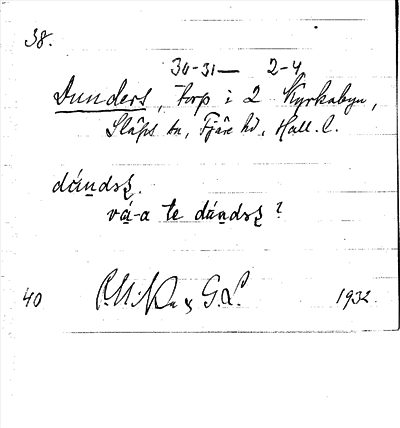 38.
30-31— 2-4
Dunders, torp i 2 Kyrkobyn,
Släps sn, Fjäre hd, Hall. l.
dánds
vá-a te dánds ?
40 & G.L. 1932.